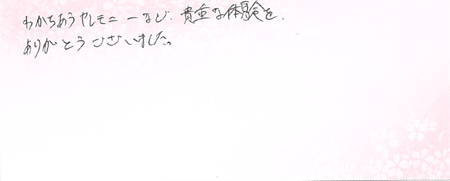 わかちあうセレモニーなど、貴重な体験を、
ありがとうございました。